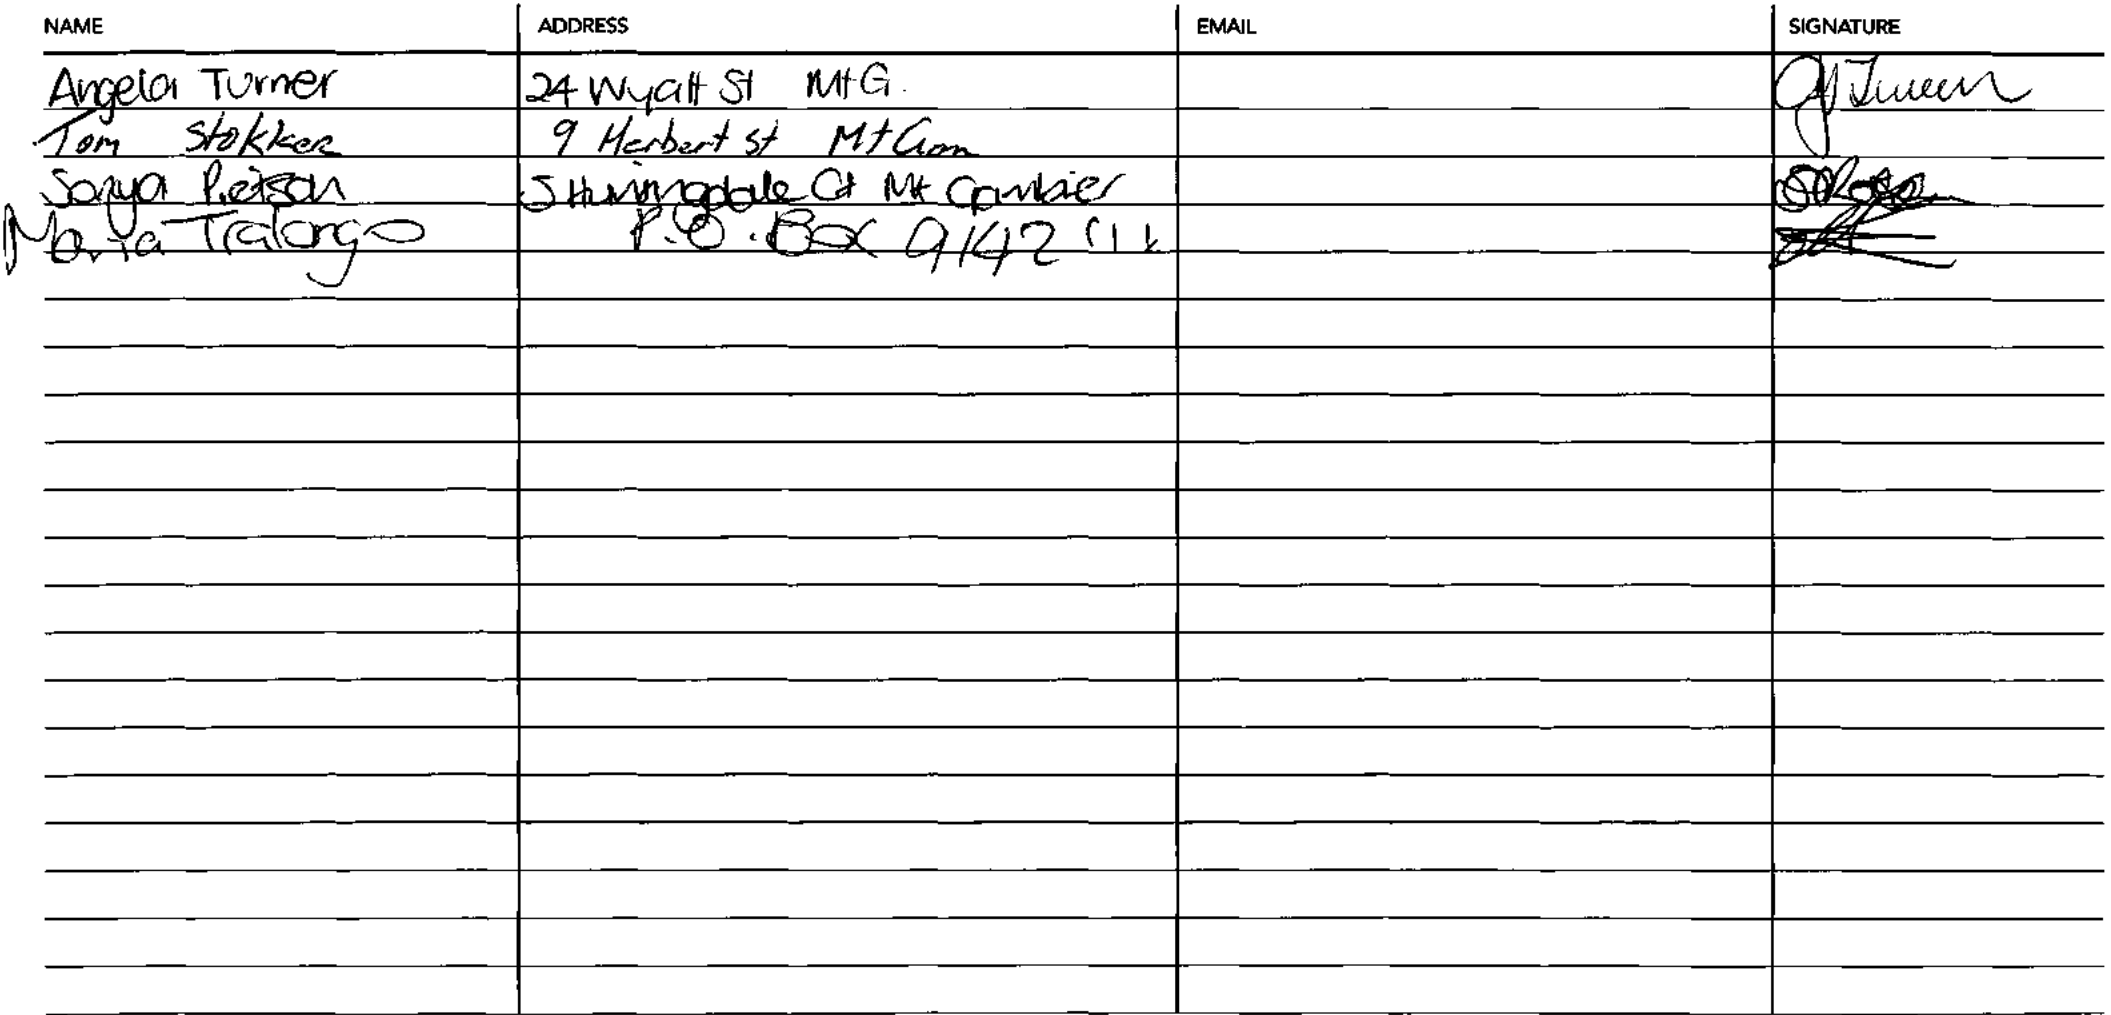 NAME ADDRESS EMAIL SIGNATURE
Angela Turner 24 Wyatt St Mt G.
Tom Stokker 9 Herbert st Mt Gam
Sonya 5 Ct Mt Gambier
Maria Tralongo P.O. Box 9142